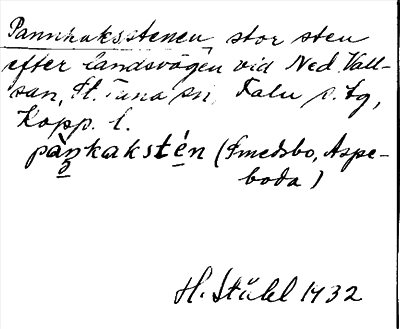 Pannkaksstenen, stor sten
efter landsvägen vid Ned. Vall-
san, St. Tuna sn, Falu s. tg,
Kopp. l.
pàn̠kakstén (Smedsbo, Aspe-
boda)
H. Ståhl 1932